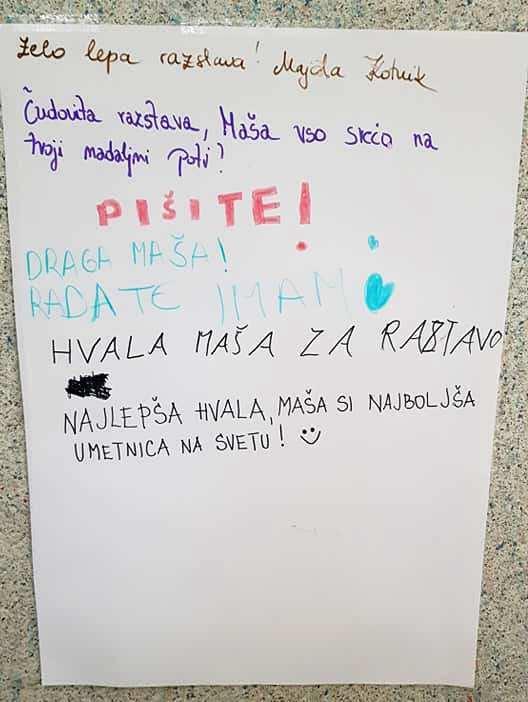 Zelo lepa razstava! Majda Kotnik
Čudovita razstava, Maša vso srečo na
tvoji nadaljni poti!
PIŠITE!
DRAGA MAŠA!
RADA TE IMAM
HVALA MAŠA ZA RAZSTAVO
NAJLEPŠA HVALA, MAŠA SI NAJBOLJŠA
UMETNICA NA SVETU!